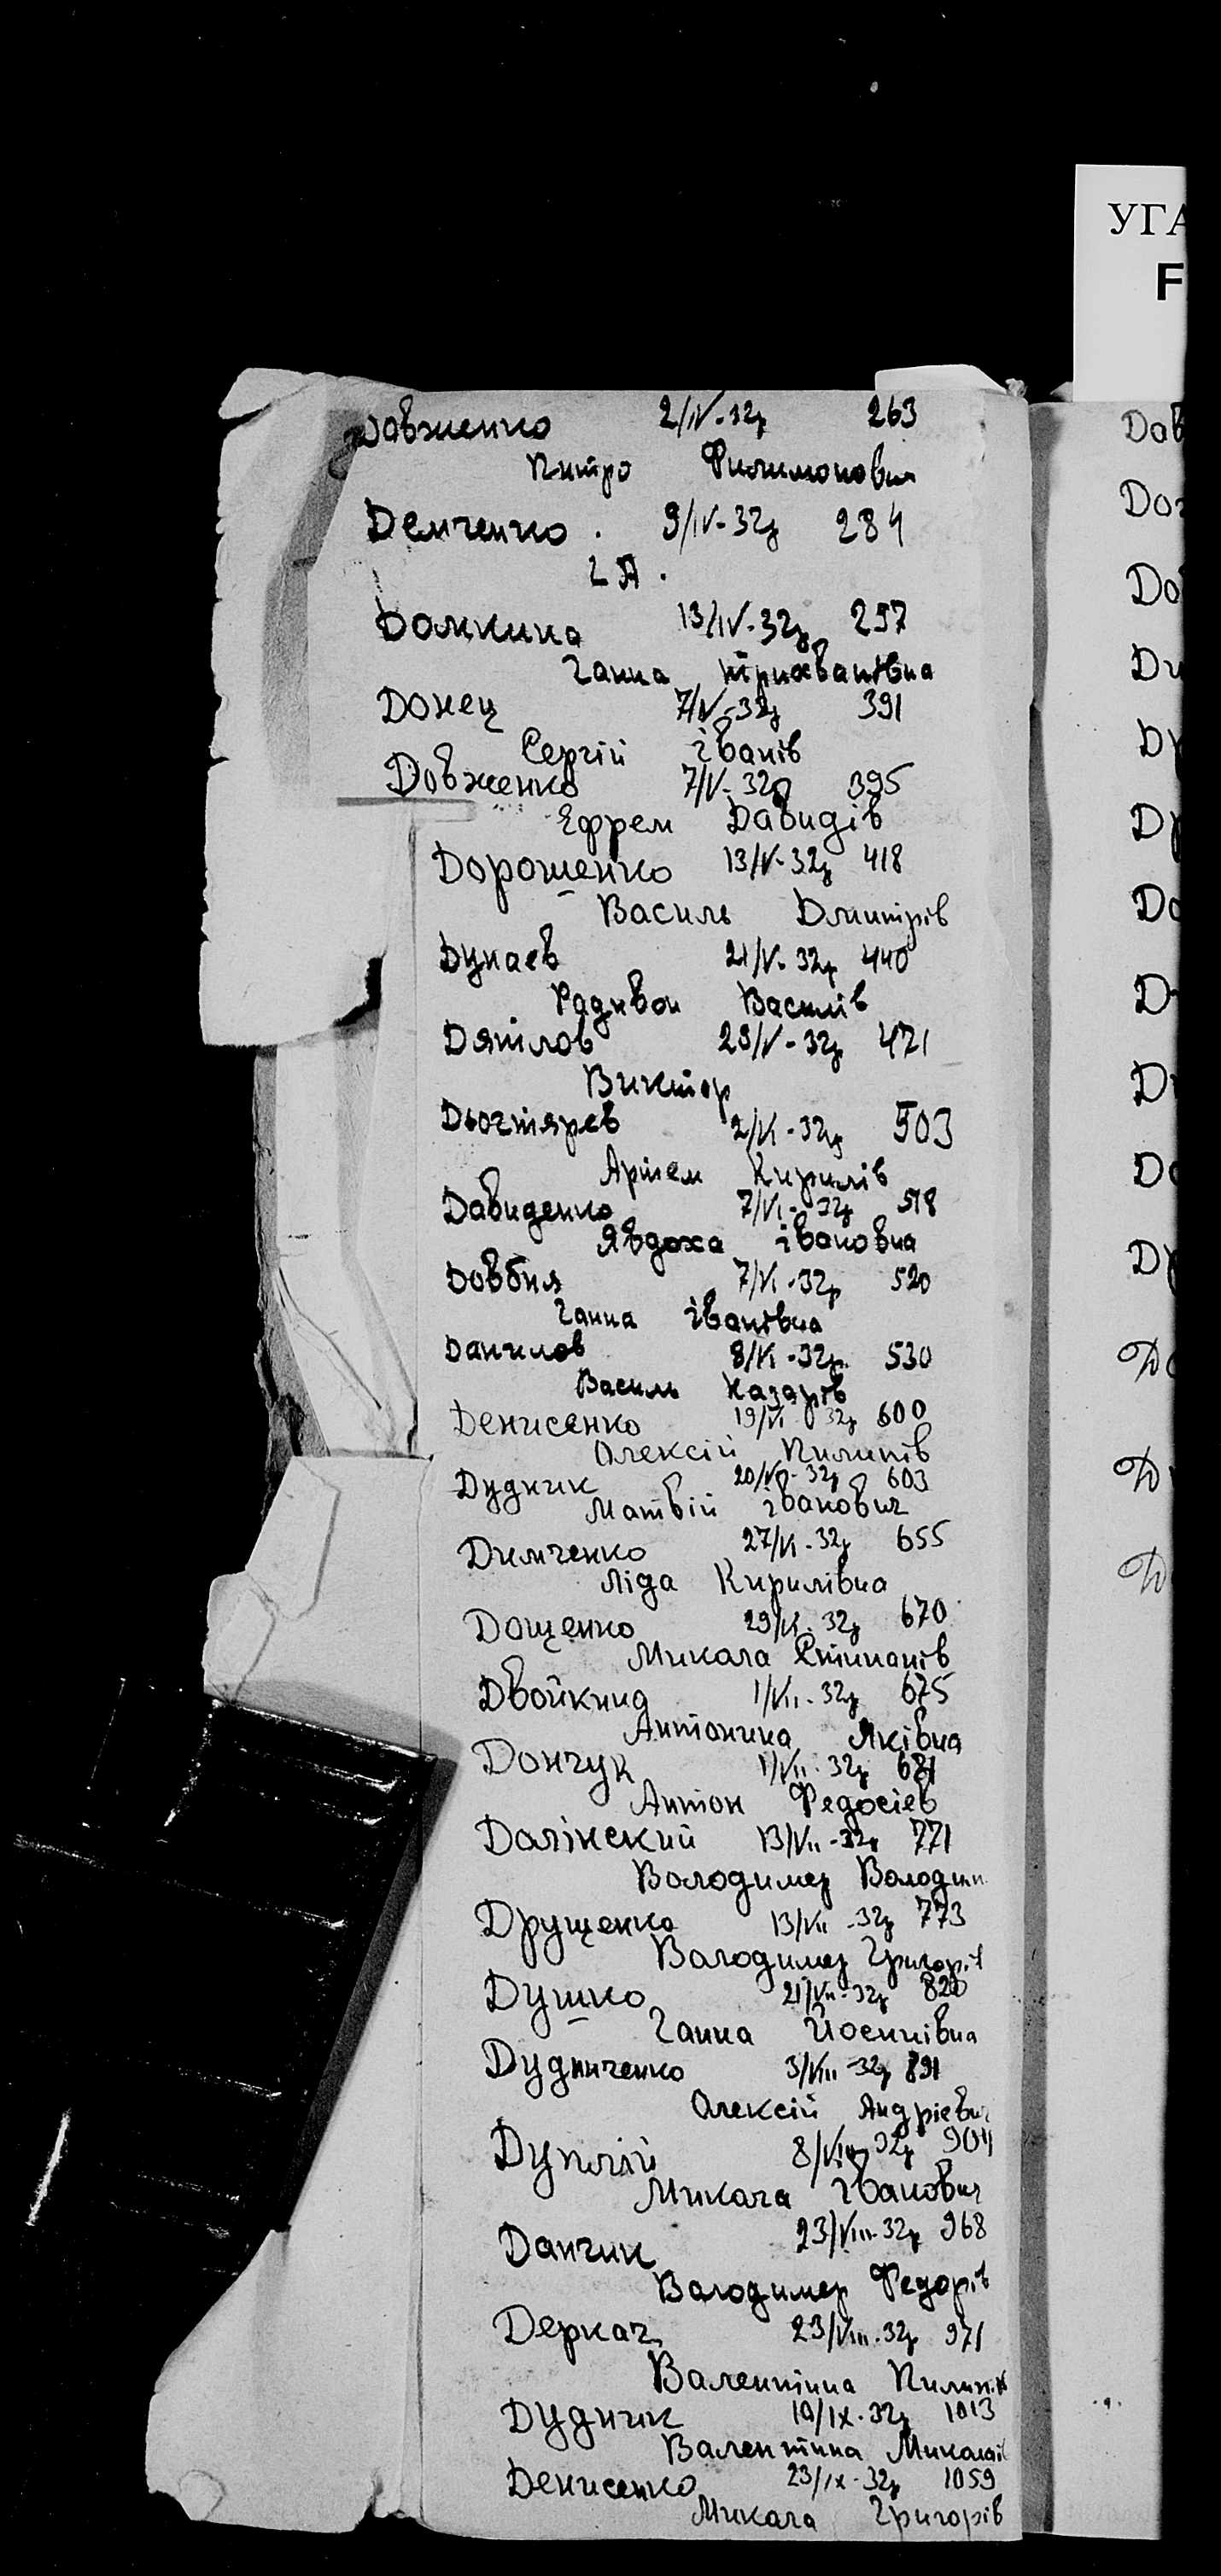 Довженко 2/IV-32р 263
Питро Филимонович
Демченко. 9/IV-32р 284
2 А.
Домкина 13/IV-32р 297
Ганна Трихванівна
Донец 7/V-32р 391
Сергій іванів
Довженко 7/V-32р 395
Ефрем Давидів
Дорошенко 13/V-32р 418
Василь Дмитрів
Дунаев 21/V-32р 440
Радивон Василів
Дятлов 29/V-32р 471
Виктор
Дьогтярев 2/VI-32р 503
Артем Кирилів
Давиденко 7/VI-32р 518
Явдоха івановна
Довбня 7/VI-32р 520
Ганна іванівна
Данилов 8/VI-32р 530
Василь Назарів
Денисенко 19/VI 32р 600
Олексій Пилипів
Дудник 20/VI-32р 603
Матвій іванович
Димченко 27/VI-32р 655
Ліда Кирилівна
Дощенко 29/VI-32р 670
Микола Стипанів
Двойкнид 1/VII-32р 675
Антонина Яківна
Дончук 1/VII-32р 681
Антон Федосіев
Далінский 13/VII-32р 771
Володимер Володим
Друщенко 13/VII-32р 773
Володимер Григорів
Душко 21/VII-32р 820
Ганна Йосипівна
Дудниченко 3/VIII-32р 891
Олексій Андрієвич
Дуплій 8/VIII-32р 904
Микола іванович
Данчик 23/VIII-32р 968
Володимер Федорів
Деркач 23/VIII-32р 971
Валентина Пилипів
Дудник 10/IX-32р 1013
Валентина Миколаї
Денисенко 23/IX-32р 1059
Микола Григорів
УГА
F
Дав
До
До
Ди
Др
Др
До
Д
Д
До
Др
До
Д
Д